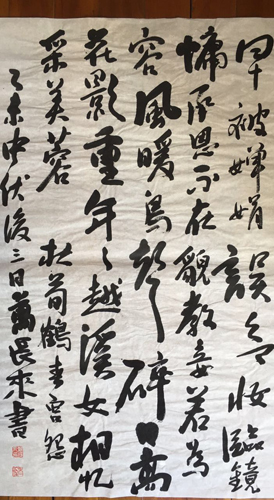 早被婵娟误欲妆临镜
慵承恩不在貌教妾若为
容風暖鳥声碎日高
花影重年々越溪女相忆
采芙蓉 杜荀鶴春宫怨
乙未中伏後三日萬長來書